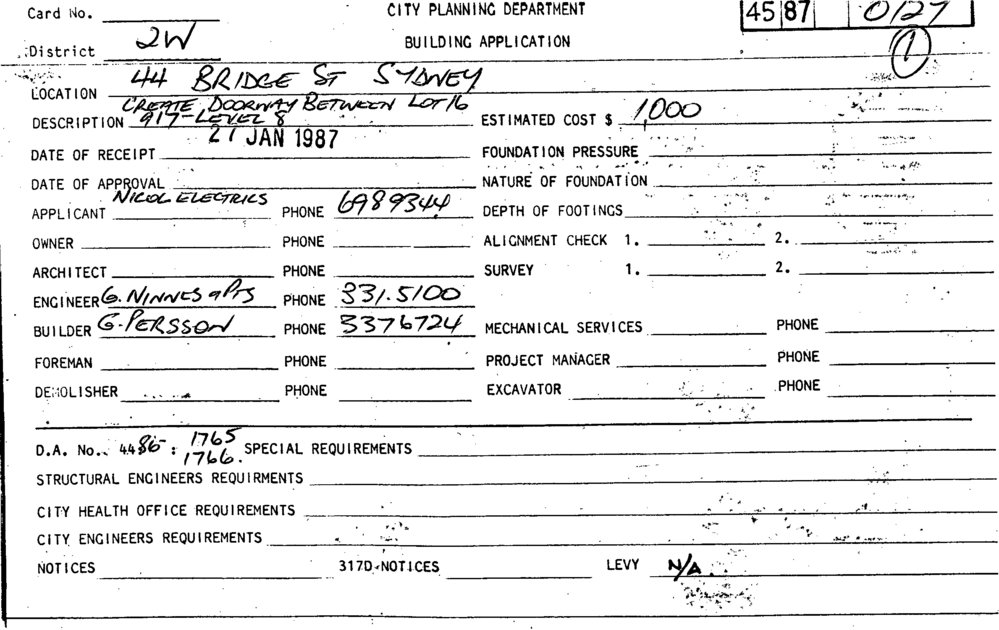 Card No. CITY PLANNING DEPARTMENT 45 87 0127
District 2W BUILDING APPLICATION 1
LOCATION 44 BRIDGE ST SYDNEY
CREATE DOORWAY BETWEEN LOT 16
DESCRIPTION &17-LEVEL 8 ESTIMATED COST $ 1,000
DATE OF RECEIPT 27 JAN 1987 FOUNDATION PRESSURE
DATE OF APPROVAL NATURE OF FOUNDATION
APPLICANT NICOL ELECTRICS PHONE 6989344 DEPTH OF FOOTINGS
OWNER PHONE ALIGNMENT CHECK 1. 2.
ARCHITECT PHONE SURVEY 1. 2.
ENGINEER G. NINNES & PTS PHONE 331.5100
BUILDER G. PERSSON PHONE 3376724 MECHANICAL SERVICES PHONE
FOREMAN PHONE PROJECT MANAGER PHONE
DEMOLISHER PHONE EXCAVATOR PHONE
D.A. No.. 4486 : 1765 SPECIAL REQUIREMENTS
1766.
STRUCTURAL ENGINEERS REQUIRMENTS
CITY HEALTH OFFICE REQUIREMENTS
CITY ENGINEERS REQUIREMENTS
NOTICES 317D-NOTICES LEVY N/A